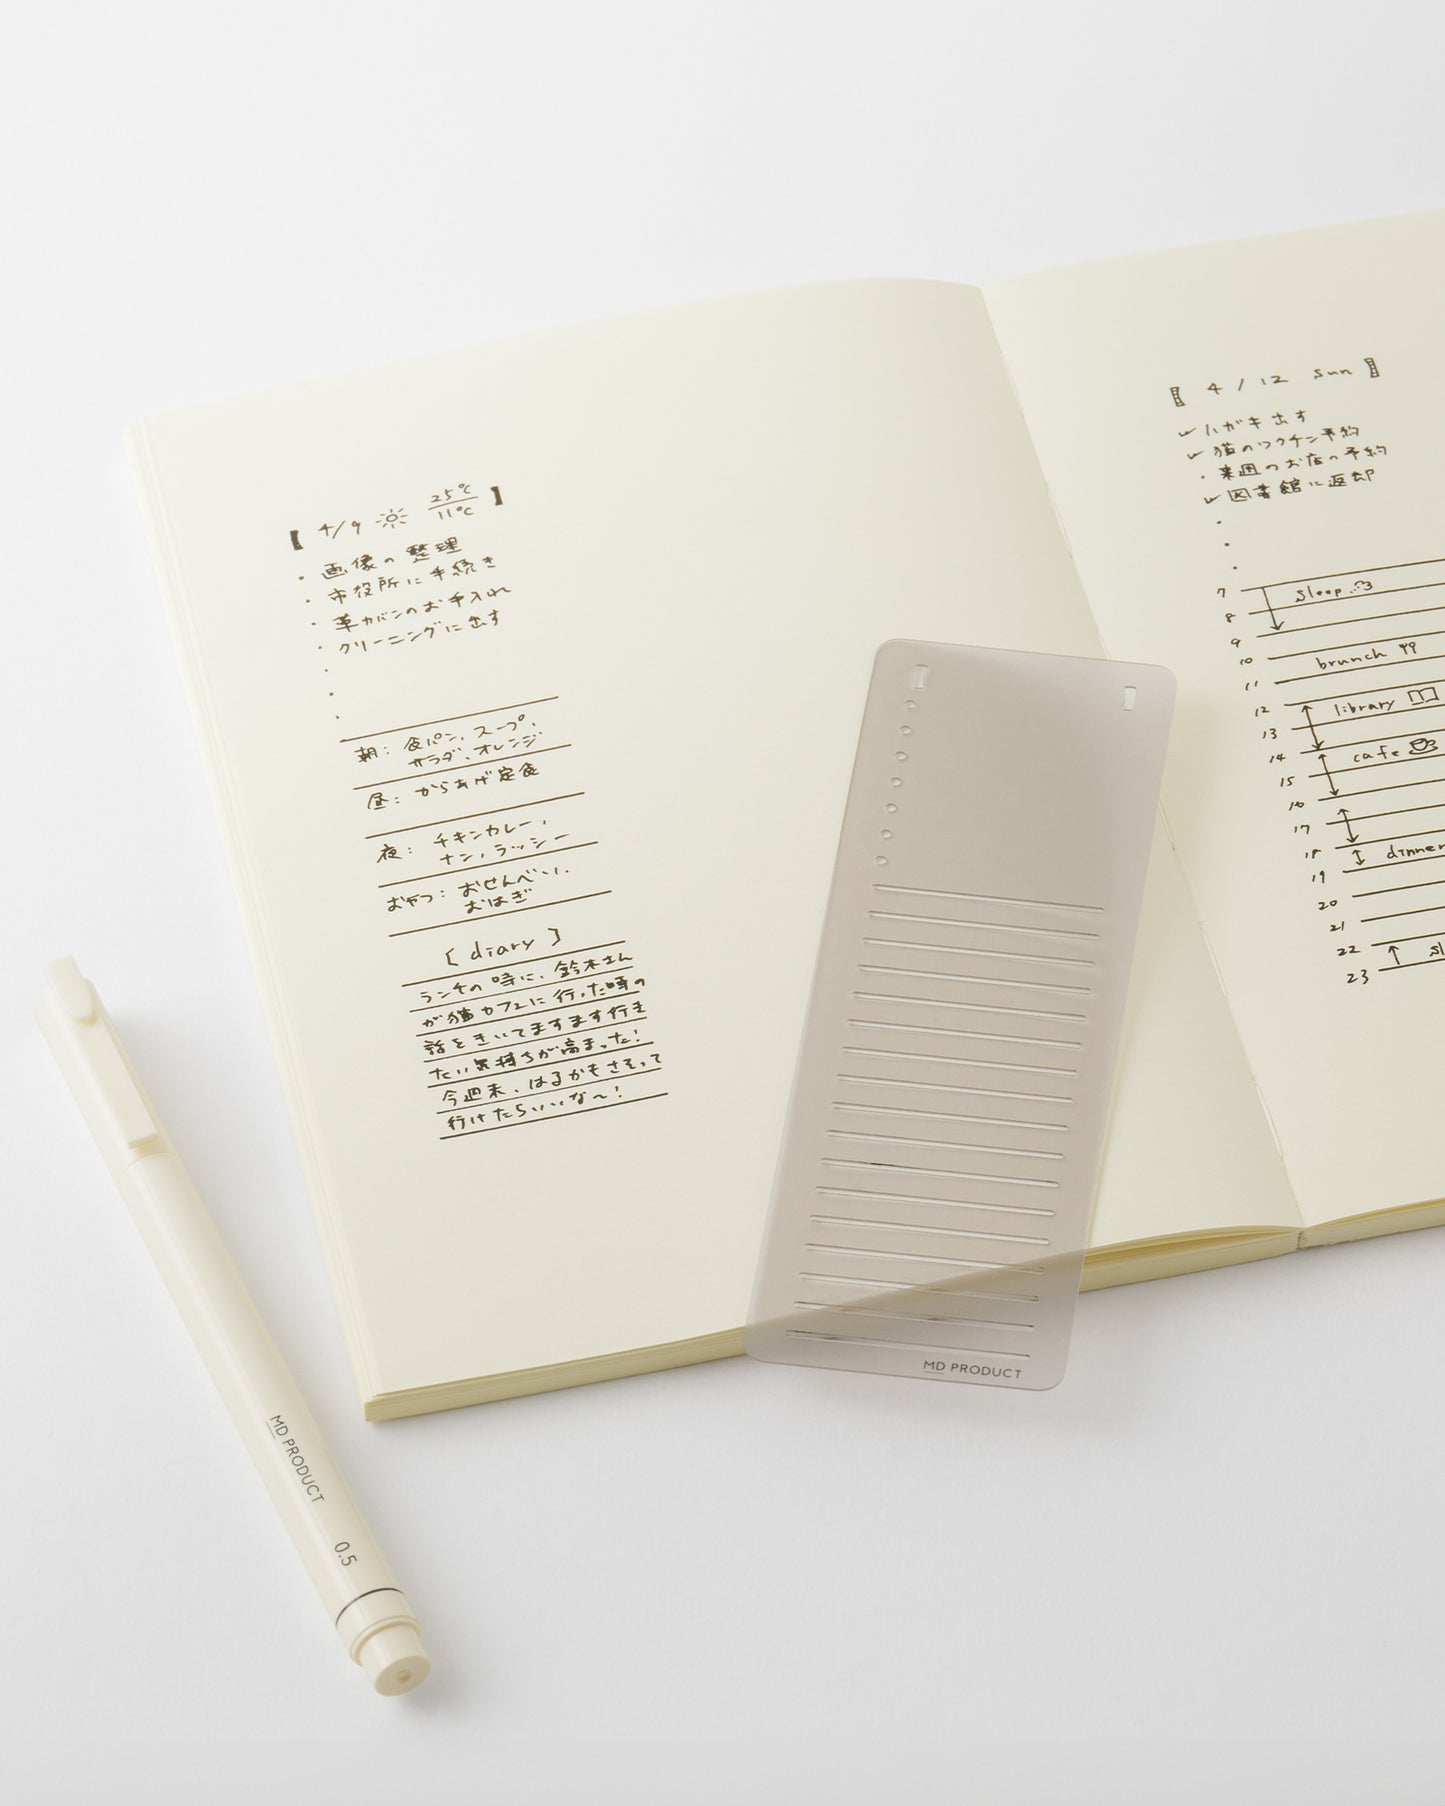 【 4/9 25℃ 】
11℃
・画像の整理
・市役所に手続き
・革カバンのお手入れ
・クリーニングに出す
・
・
・
朝: 食パン、スープ、
サラダ、オレンジ
昼: からあげ定食
夜: チキンカレー、
ナン、ラッシー
おやつ: おせんべい、
おはぎ
[ diary ]
ランチの時に、鈴木さん
が猫カフェに行った時の
話をきいてますます行き
たい気持ちが高まった!
今週末、はるかをさそって
行けたらいいな〜!
【 4/12 sun 】
✓ハガキ出す
✓猫のワクチン予約
・来週のお店の予約
✓図書館に返却
・
・
・
7 sleep
8
9
10 brunch
11
12 library
13
14 cafe
15
16
17
18 dinner
19
20
21
22
23
MD PRODUCT
MD PRODUCT 0.5